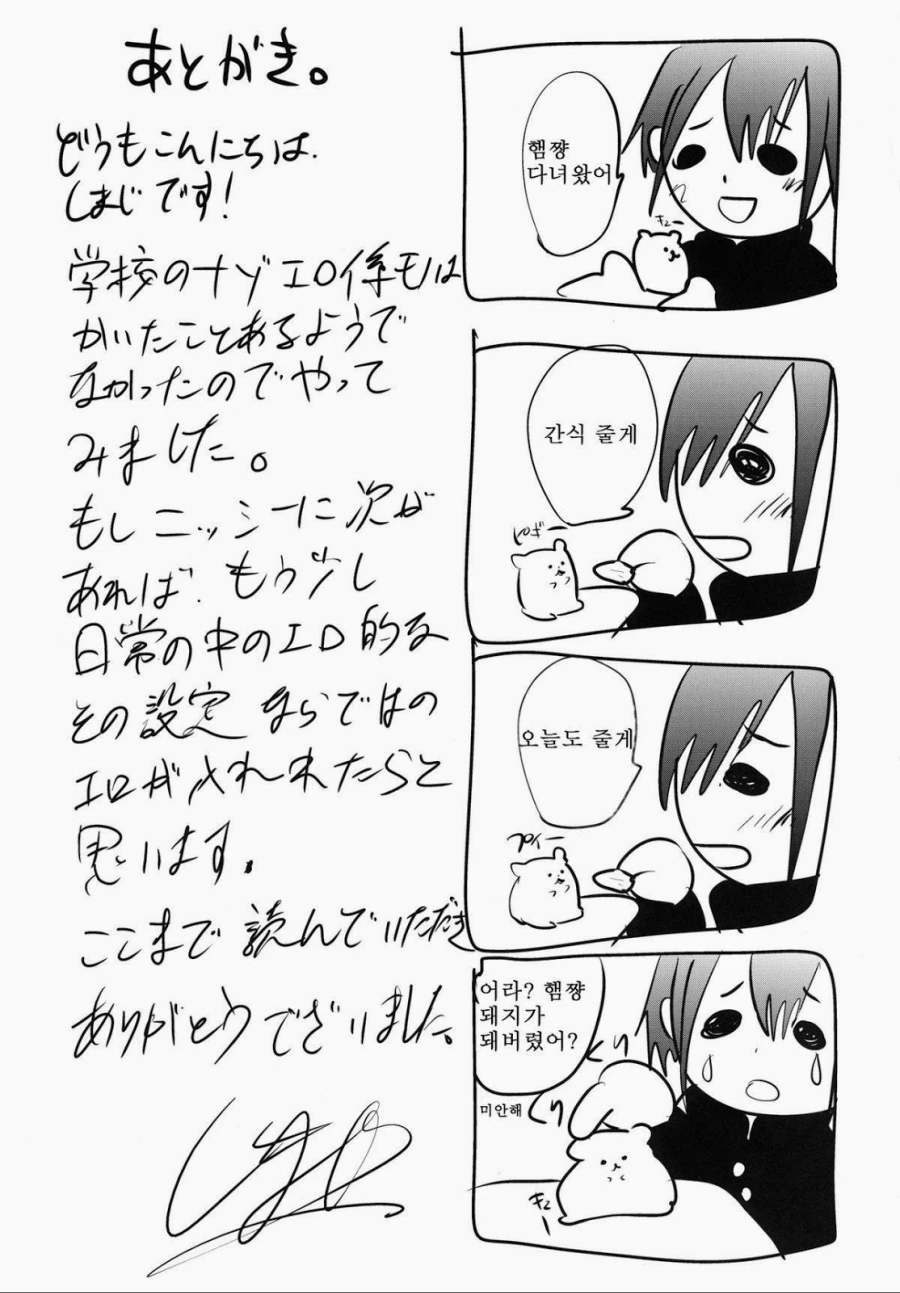 あとがき。
どうもこんにちは、
しまじです!
学校のナゾエロ係モノは
かいたことあるようで
なかったのでやって
みました。
もしニッシーに次が
あれば、もう少し
日常の中のエロ的な
その設定ならではの
エロが入れれたらと
思います。
ここまで読んでいただき
ありがとうございました。
햄쨩
다녀왔어
キュー
간식 줄게
오늘도 줄게
プイー
어라? 햄쨩
돼지가
돼버렸어?
미안해
キュー